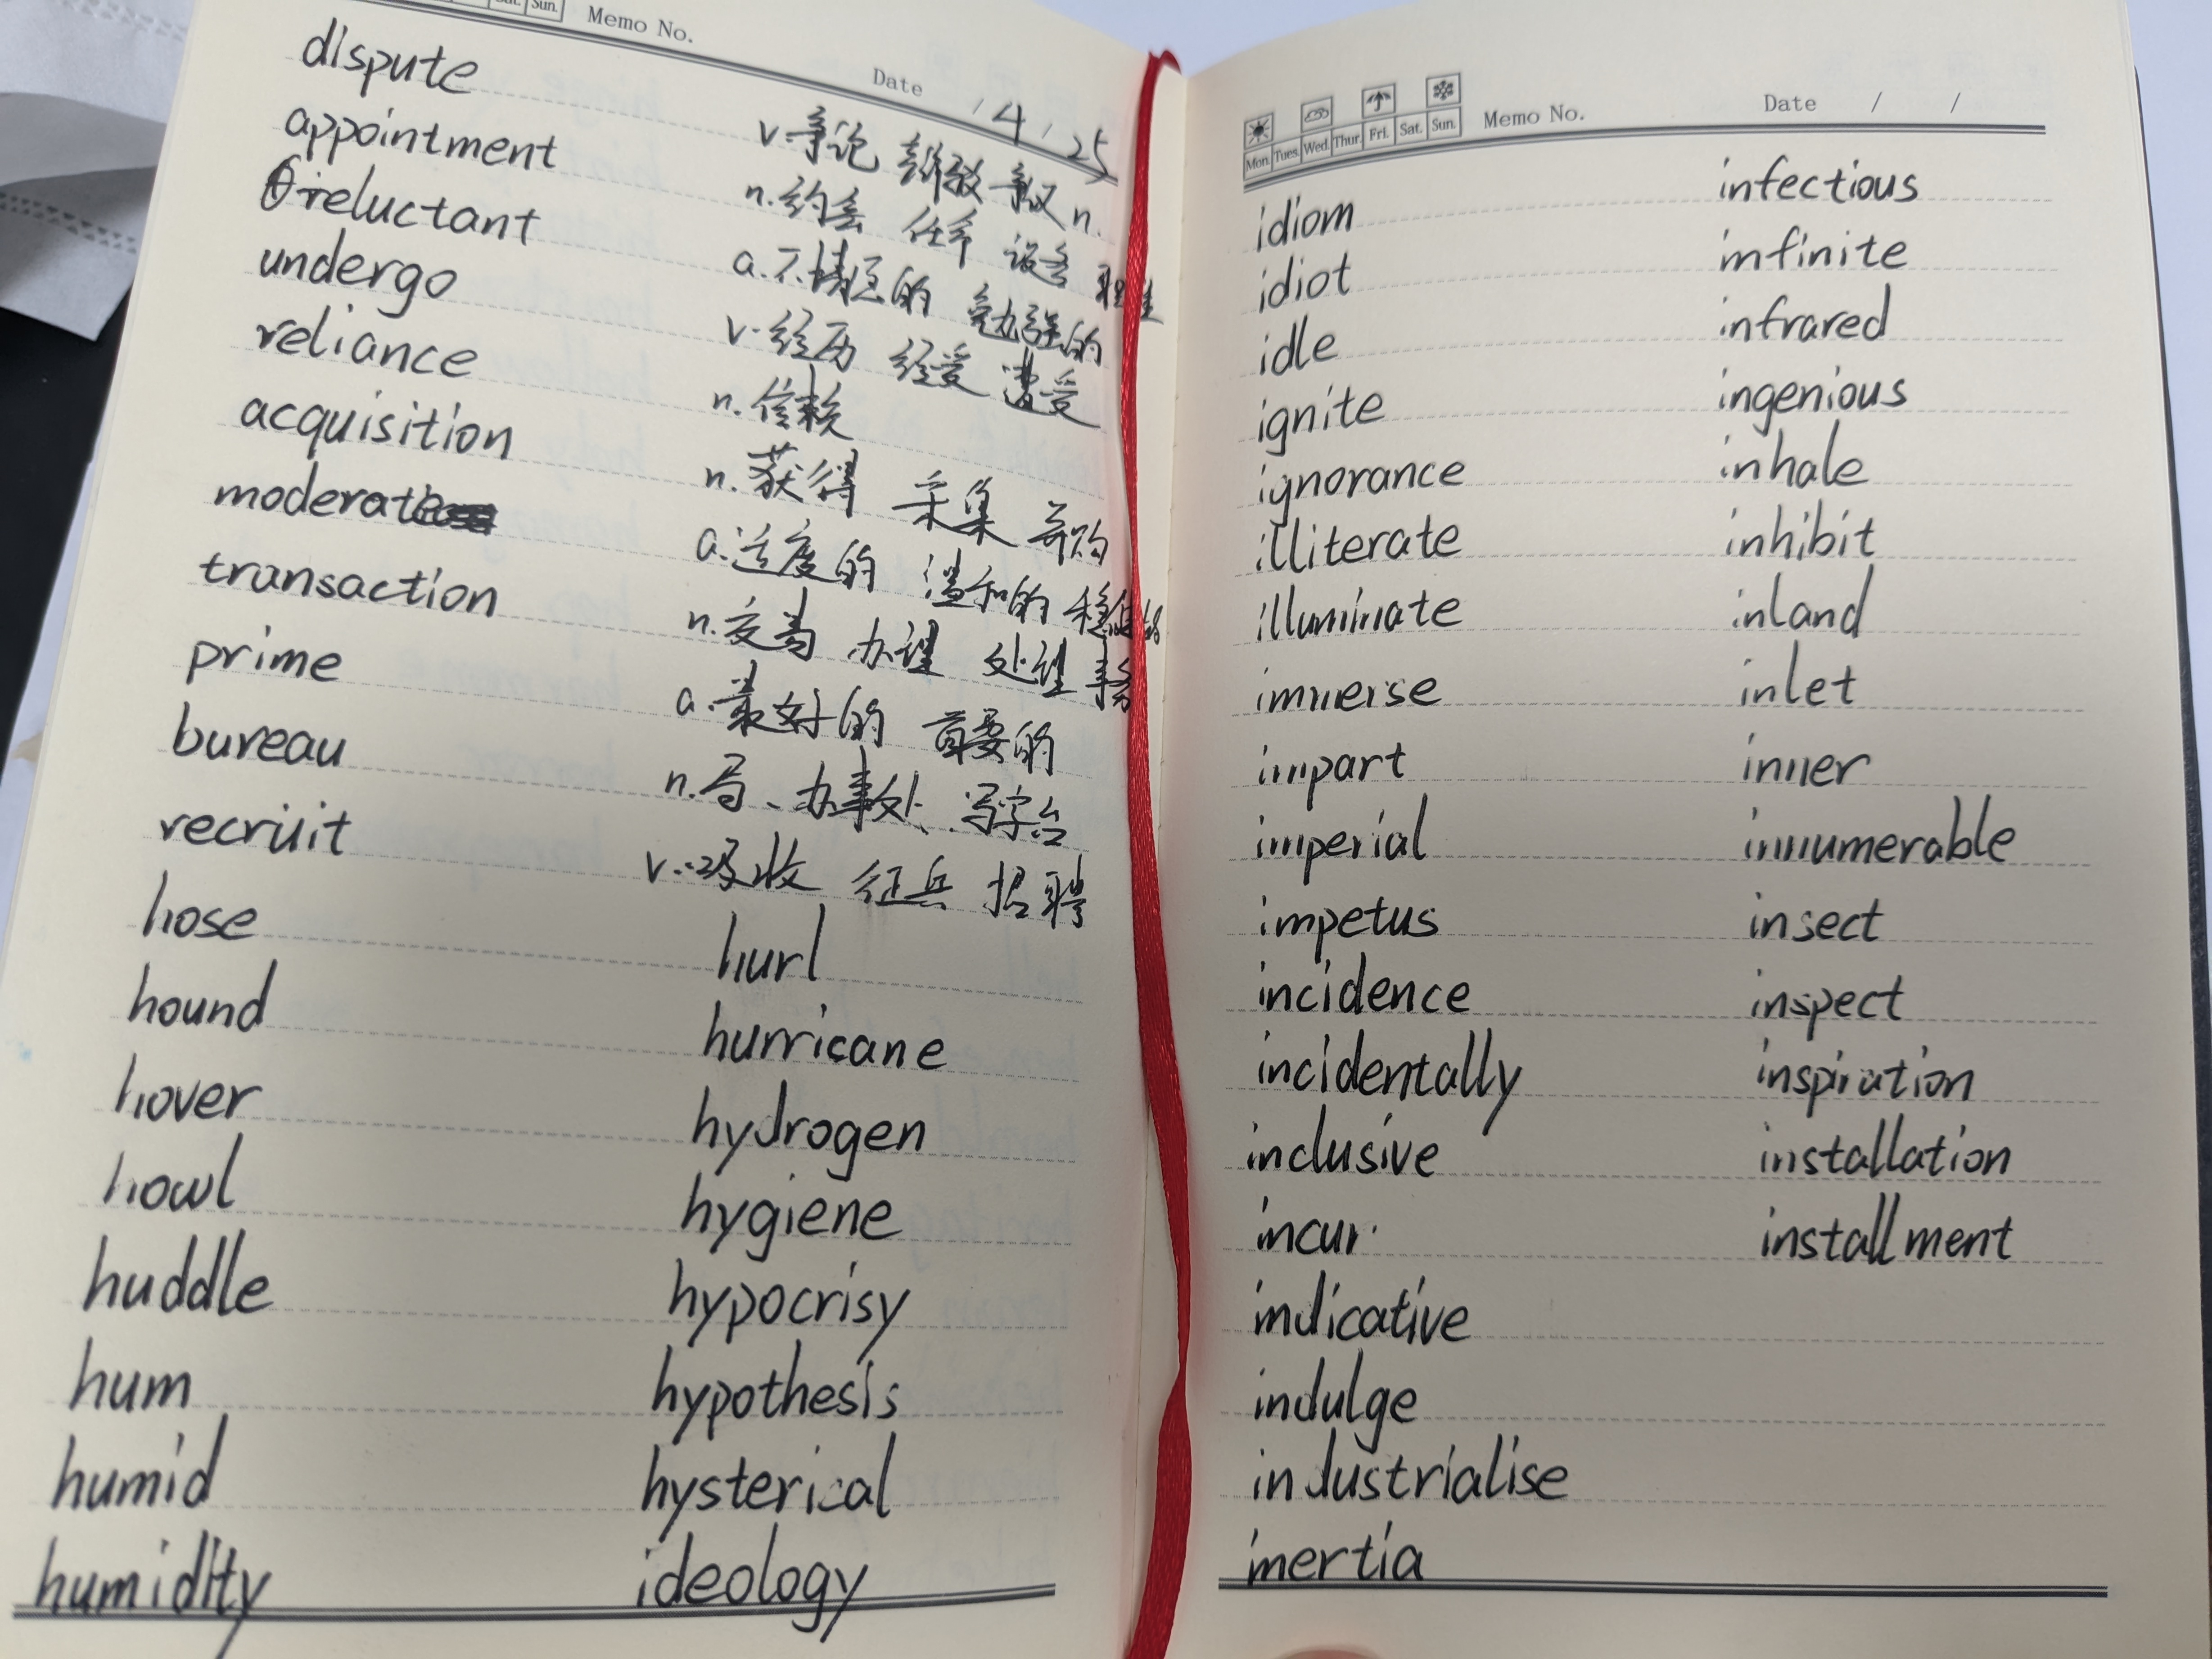 Sat. Sun. Memo No.
Date / 4 / 25
dispute v.争论 辩驳 争议 n.
appointment n.约会 任命 设备
reluctant a.不情愿的 勉强的
undergo v.经历 经受 遭受
reliance n.信赖
acquisition n.获得 采集
moderate a.适度的 温和的
transaction n.交易 办理 处理 事务
prime a.最好的 首要的
bureau n.局、办事处、写字台
recruit v.吸收 征兵 招聘
hose
hound
hover
howl
huddle
hum
humid
humidity
hurl
hurricane
hydrogen
hygiene
hypocrisy
hypothesis
hysterical
ideology
Mon. Tues. Wed. Thur. Fri. Sat. Sun. Memo No. Date / /
idiom
idiot
idle
ignite
ignorance
illiterate
illuminate
immerse
impart
imperial
impetus
incidence
incidentally
inclusive
incur
indicative
indulge
industrialise
inertia
infectious
infinite
infrared
ingenious
inhale
inhibit
inland
inlet
inner
innumerable
insect
inspect
inspiration
installation
installment